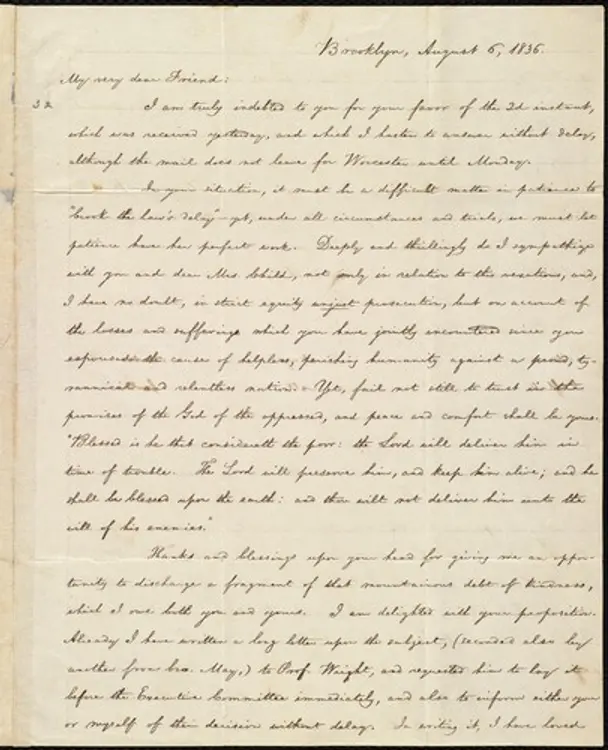 Brooklyn, August 6, 1836.
My very dear Friend:
32
I am truly indebted to you for your favor of the 2d instant,
which was received yesterday, and which I hasten to answer without delay,
although the mail does not leave for Worcester until Monday.
In your situation, it must be a difficult matter in patience to
"brook the law's delay"—yet, under all circumstances and trials, we must let
patience have her perfect work. Deeply and thrillingly do I sympathize
with you and dear Mrs. Child, not only in relation to this vexatious, and,
I have no doubt, in strict equity unjust prosecution, but on account of
the losses and sufferings which you have jointly encountered since you
espoused the cause of helpless, perishing humanity against a proud, ty-
rannical and relentless nation. Yet, fail not still to trust in the
promises of the God of the oppressed, and peace and comfort shall be yours.
"Blessed is he that considereth the poor: the Lord will deliver him in
time of trouble. The Lord will preserve him, and keep him alive; and he
shall be blessed upon the earth: and thou wilt not deliver him unto the
will of his enemies."
Thanks and blessings upon your head for giving me an oppor-
tunity to discharge a fragment of that mountainous debt of kindness,
which I owe both you and yours. I am delighted with your proposition.
Already I have written a long letter upon the subject, (seconded also by
another from bro. May,) to Prof. Wright, and requested him to lay it
before the Executive Committee immediately, and also to inform either you
or myself of their decision without delay. In writing it, I have loved